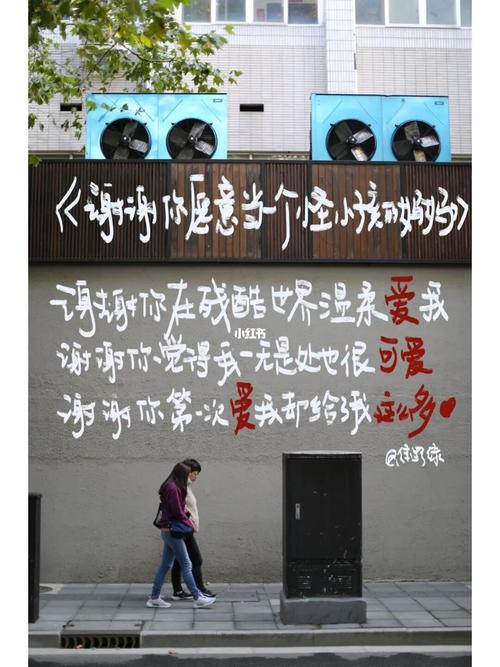 《谢谢你愿意当个怪小孩的妈妈》
谢谢你在残酷世界温柔爱我
小红书
谢谢你觉得我一无是处也很可爱
谢谢你第一次爱我却给了我这么多